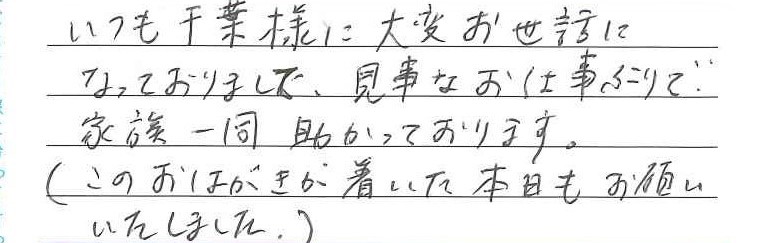 いつも千葉様に大変お世話に
なっておりまして、見事なお仕事ぶりで
家族一同助かっております。
(このおはがきが着いた本日もお願い
いたしました。)